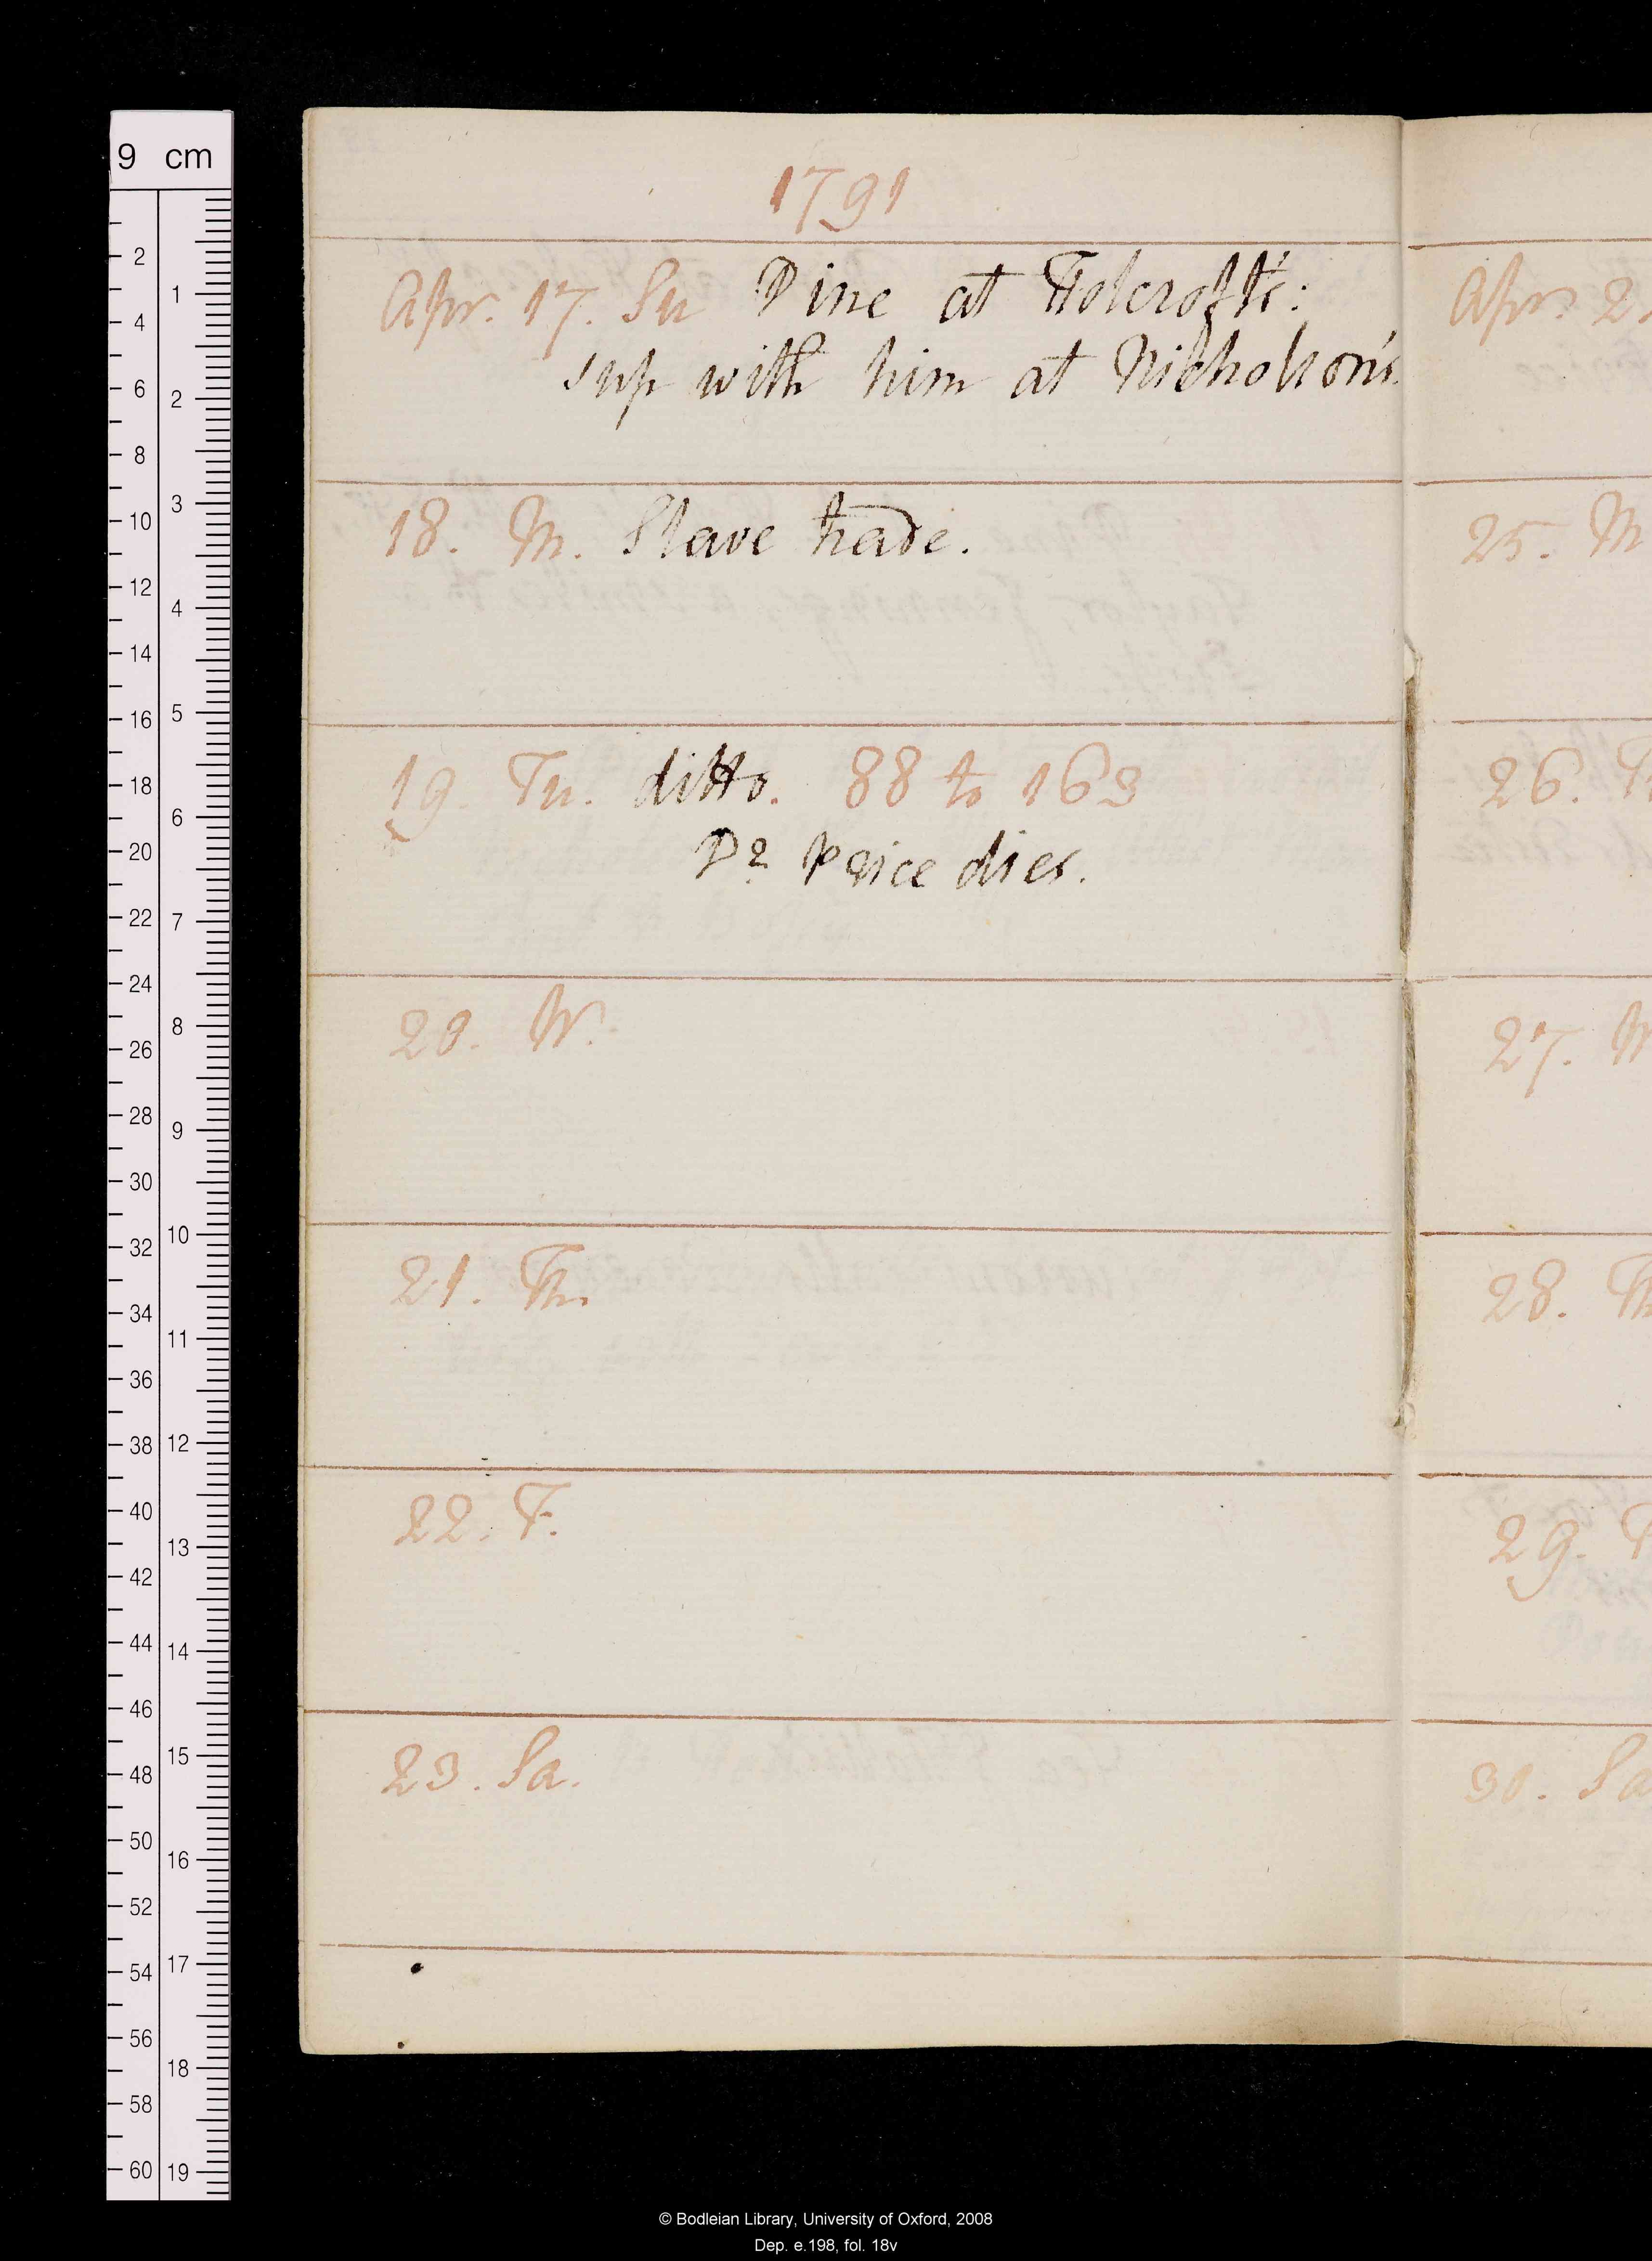 9 cm
2
4
6
8
10
12
14
16
18
20
22
24
26
28
30
32
34
36
38
40
42
44
46
48
50
52
54
56
58
60
1
2
3
4
5
6
7
8
9
10
11
12
13
14
15
16
17
18
19
1791
Apr. 17. Su Dine at Holcroft's:
sup with him at Nicholson's.
18. M. Slave trade.
19. Tu. ditto. 88 to 163
Dr Price dies.
20. W.
21. Th.
22. F.
23. Sa.
Apr. 2
25. M
26. T
27. W
28. Th
29. F
30. Sa
© Bodleian Library, University of Oxford, 2008
Dep. e.198, fol. 18v